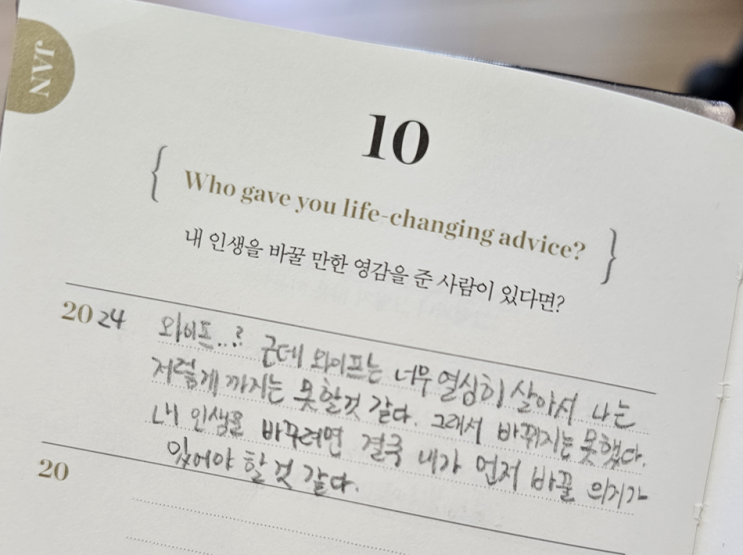 JAN
10
{ Who gave you life-changing advice? }
내 인생을 바꿀 만한 영감을 준 사람이 있다면?
2024 와이프..? 근데 와이프는 너무 열심히 살아서 나는
저렇게 까지는 못할것 같다. 그래서 바뀌지는 못했다.
내 인생을 바꾸려면 결국 내가 먼저 바꿀 의지가
있어야 할 것 같다.
20